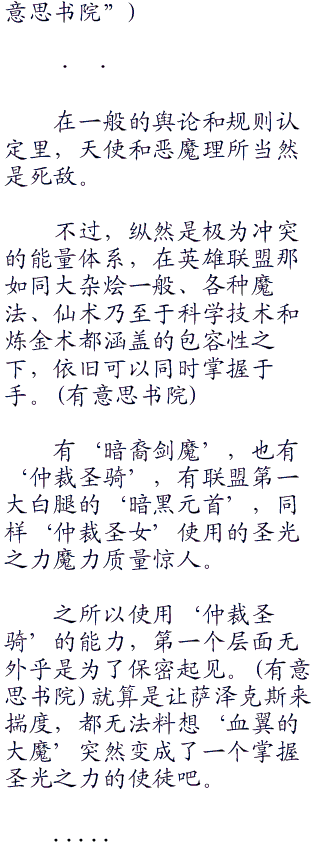 意思书院”)
. .
在一般的舆论和规则认
定里，天使和恶魔理所当然
是死敌。
不过，纵然是极为冲突
的能量体系，在英雄联盟那
如同大杂烩一般、各种魔
法、仙术乃至于科学技术和
炼金术都涵盖的包容性之
下，依旧可以同时掌握于
手。(有意思书院)
有‘暗裔剑魔’，也有
‘仲裁圣骑’，有联盟第一
大白腿的‘暗黑元首’，同
样‘仲裁圣女’使用的圣光
之力魔力质量惊人。
之所以使用‘仲裁圣
骑’的能力，第一个层面无
外乎是为了保密起见。(有意
思书院)就算是让萨泽克斯来
揣度，都无法料想‘血翼的
大魔’突然变成了一个掌握
圣光之力的使徒吧。
.....